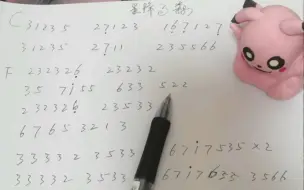 C 31235 27123 167127
31235 2711 235566
F 232326 23232
35 7155 633 522
232326 23533
6765 3213
33332 3533 67i7535 ×2
33332 3533 67i765 3566